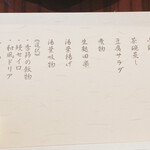 茶碗蒸し
豆腐サラダ
煮物
生麩田楽
湯葉揚げ
湯葉吸物
・季節の飯物
・蛙セイロ
・和風ドリア